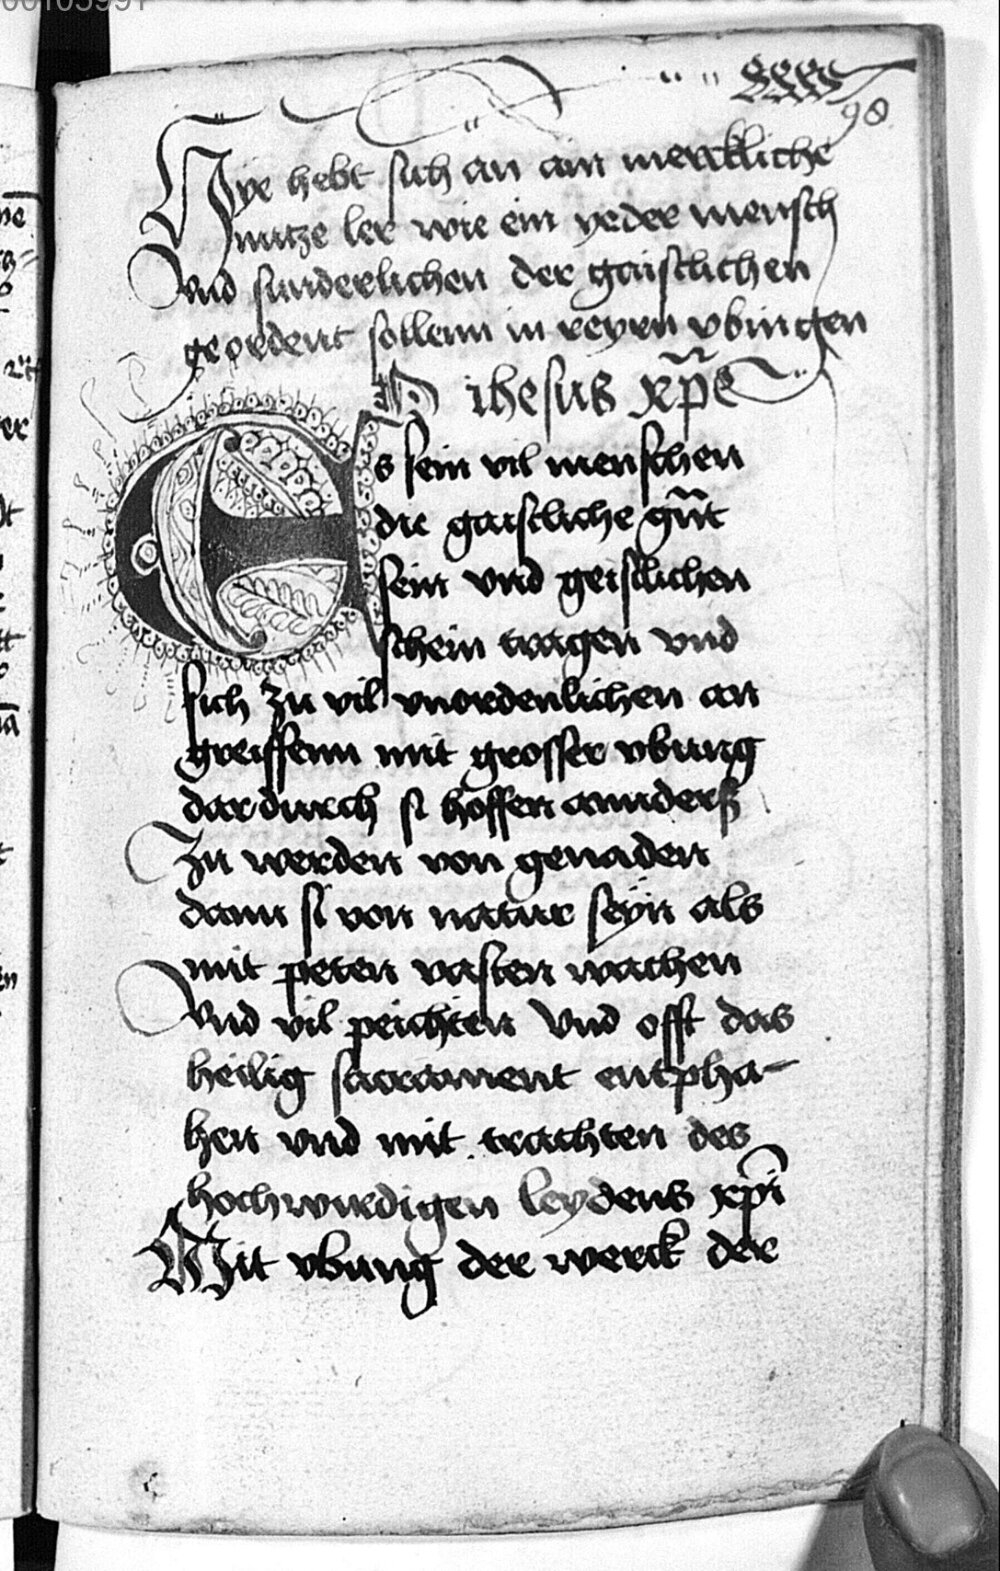 98
Hye hebt sich an ain merckliche
nutze ler wie ein yeder mensch
vnd sunderlichen der gaistlichen
geordent sollenn in reyen vbungen
ihesus xp̄e
Es sein vil menschen
die gaistliche gūt
sein vnd geistlichen
schein tragen vnd
sich zu vil vnordenlichen an
greiffenn mit grosser vbung
dardurch si hoffen annderß
zu werden von genaden
dann si von natur seyn als
mit peten vasten wachen
vnd vil peichten vnd offt das
heilig sacrament entpha-
hen vnd mit trachten des
hochwirdigen leydens xp̄i
Mit vbung der werck der